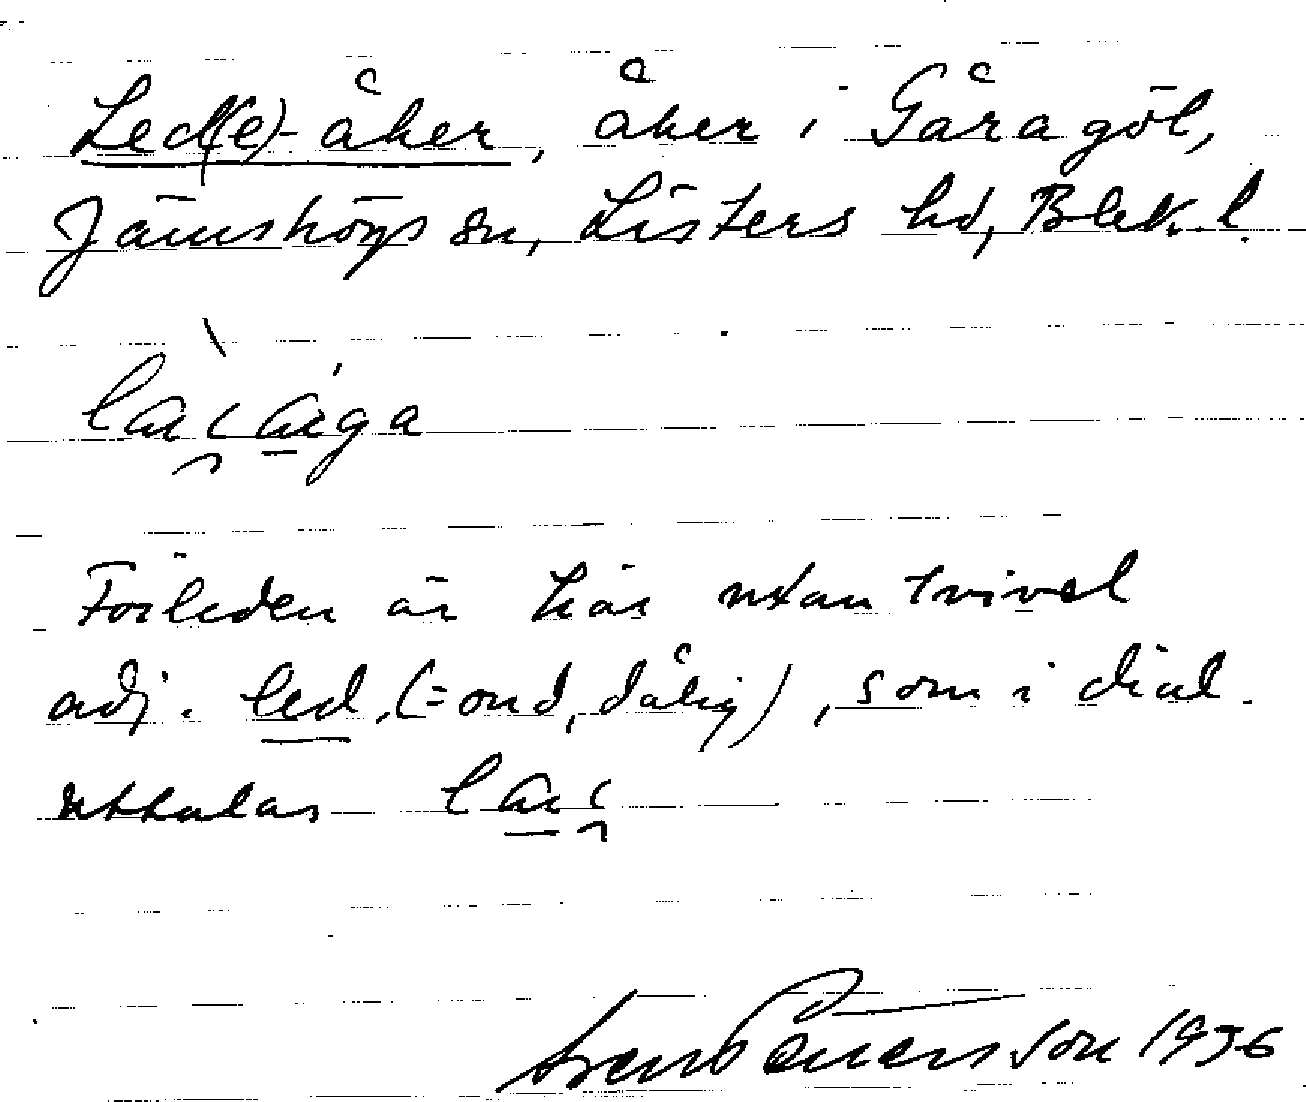 Led(e)-åker, åker i Gåragöl,
Jämshögs sn, Listers hd, Blek. l.
Förleden är här utan tvivel
adj. led, (= ond, dålig), som i dial.
uttalas
Sven 1936